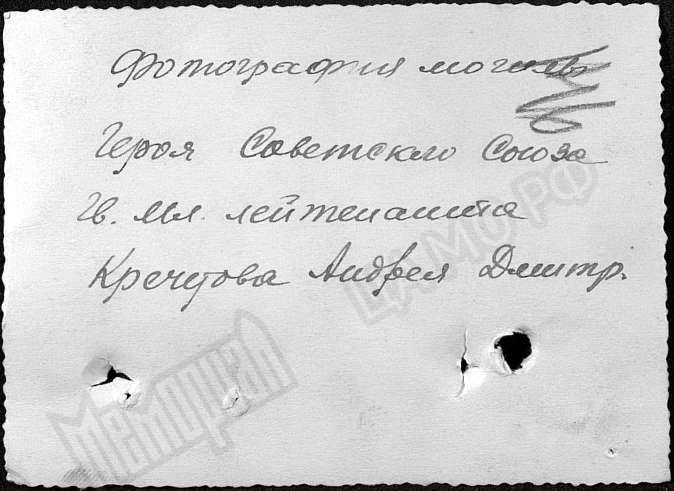 Фотография могилы
Героя Советского Союза
Гв. мл. лейтенанта
Кречетова Андрея Дмитр.
ЦА МО РФ
Мемориал